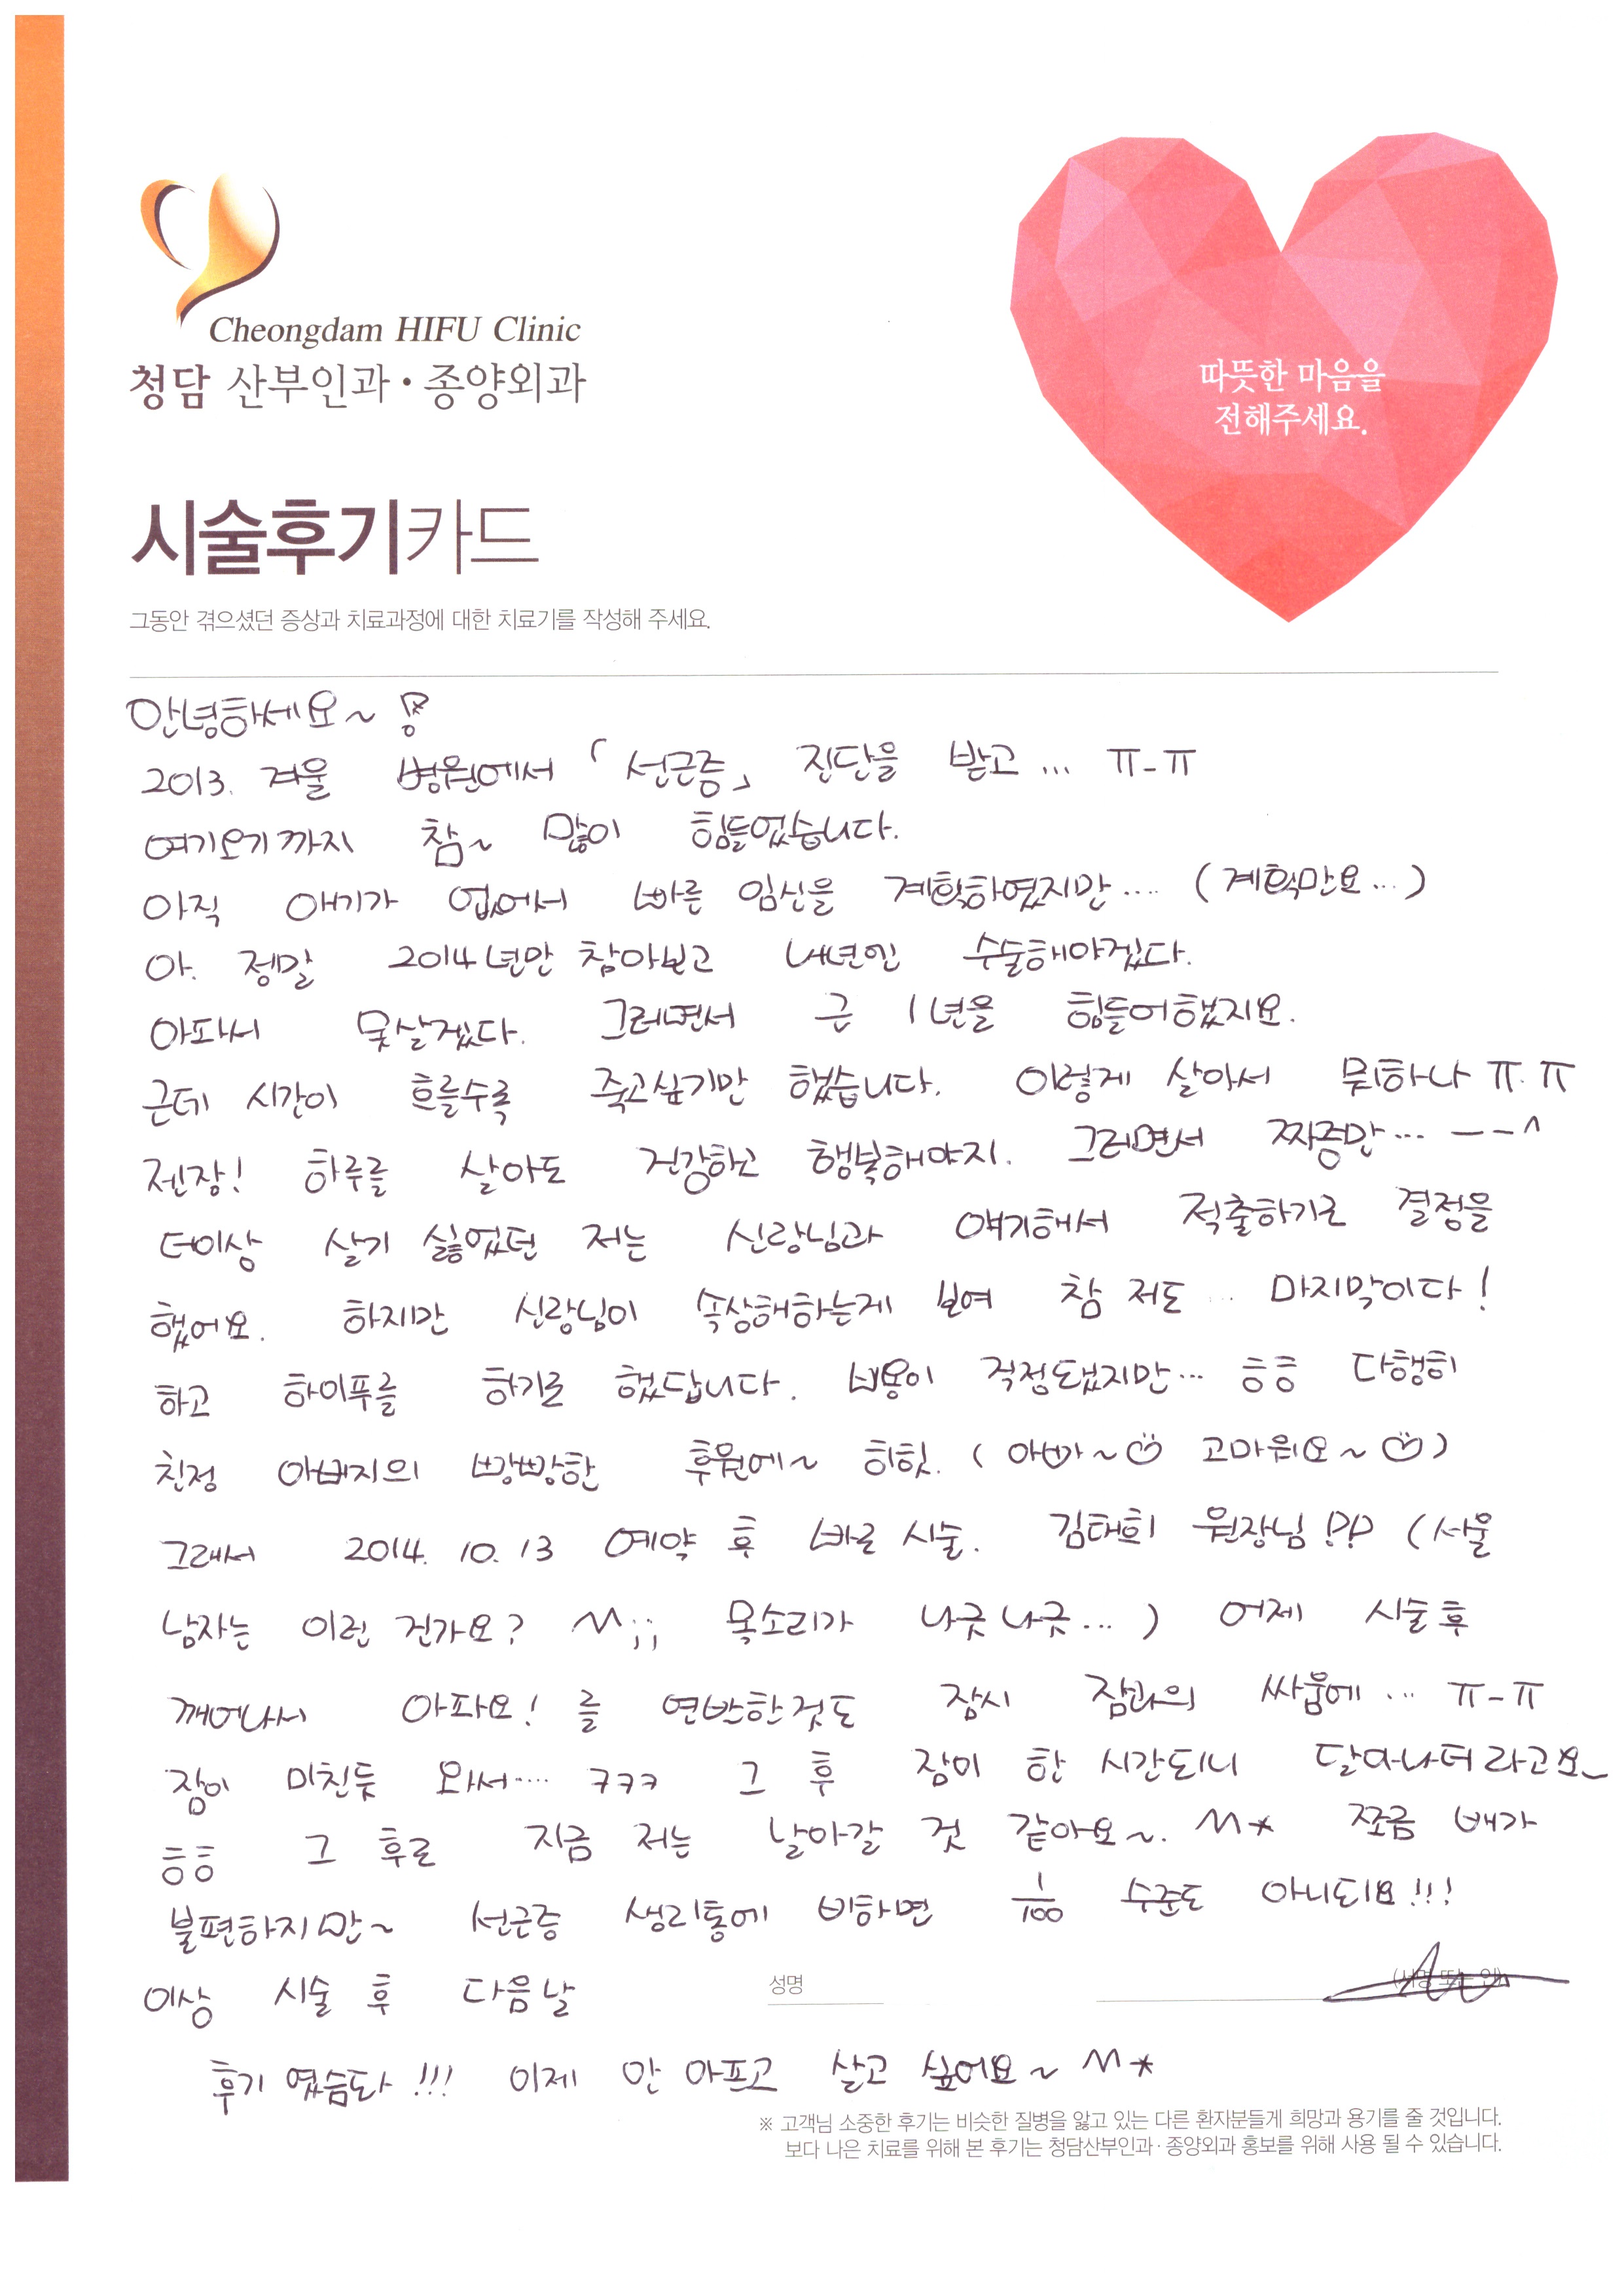 Cheongdam HIFU Clinic
청담 산부인과·종양외과
따뜻한 마음을
전해주세요.
시술후기카드
그동안 겪으셨던 증상과 치료과정에 대한 치료기를 작성해 주세요.
안녕하세요~
2013. 겨울 병원에서 「선근증」 진단을 받고... ㅠ-ㅠ
여기오기까지 참~ 많이 힘들었습니다.
아직 애기가 없어서 빠른 임신을 계획하였지만.... (계획만요...)
아. 정말 2014년만 참아보고 내년엔 수술해야겠다.
아파서 못살겠다. 그러면서 근 1년을 힘들어했지요.
근데 시간이 흐를수록 죽고싶기만 했습니다. 이렇게 살아서 뭐하나 ㅠ.ㅠ
젠장! 하루를 살아도 건강하고 행복해야지. 그러면서 짜증만... ㅡㅡ^
더이상 살기 싫었던 저는 신랑님과 얘기해서 적출하기로 결정을
했어요. 하지만 신랑님이 속상해하는게 보여 참 저도.. 마지막이다!
하고 하이푸를 하기로 했답니다. 비용이 걱정됐지만... 흐흐 다행히
친정 아버지의 빵빵한 후원에~ 히힛. (아빠~♡ 고마워요~♡)
그래서 2014. 10. 13 예약 후 바로 시술. 김태희 원장님!?!? (서울
남자는 이런 건가요? ^^;; 목소리가 나긋나긋...) 어제 시술 후
깨어나서 아파요! 를 연발한것도 잠시 잠과의 싸움에... ㅠ-ㅠ
잠이 미친듯 와서.... ㅋㅋㅋ 그 후 잠이 한 시간되니 달아나더라고요~
흐흐 그 후로 지금 저는 날아갈 것 같아요~. ^^* 쪼금 배가
불편하지만~ 선근증 생리통에 비하면 1/100 수준도 아니되요!!!
이상 시술 후 다음날 성명 (서명 또는 인)
후기 였슴돠!!! 이제 안 아프고 살고 싶어요~ ^^*
※ 고객님 소중한 후기는 비슷한 질병을 앓고 있는 다른 환자분들게 희망과 용기를 줄 것입니다.
보다 나은 치료를 위해 본 후기는 청담산부인과·종양외과 홍보를 위해 사용 될 수 있습니다.